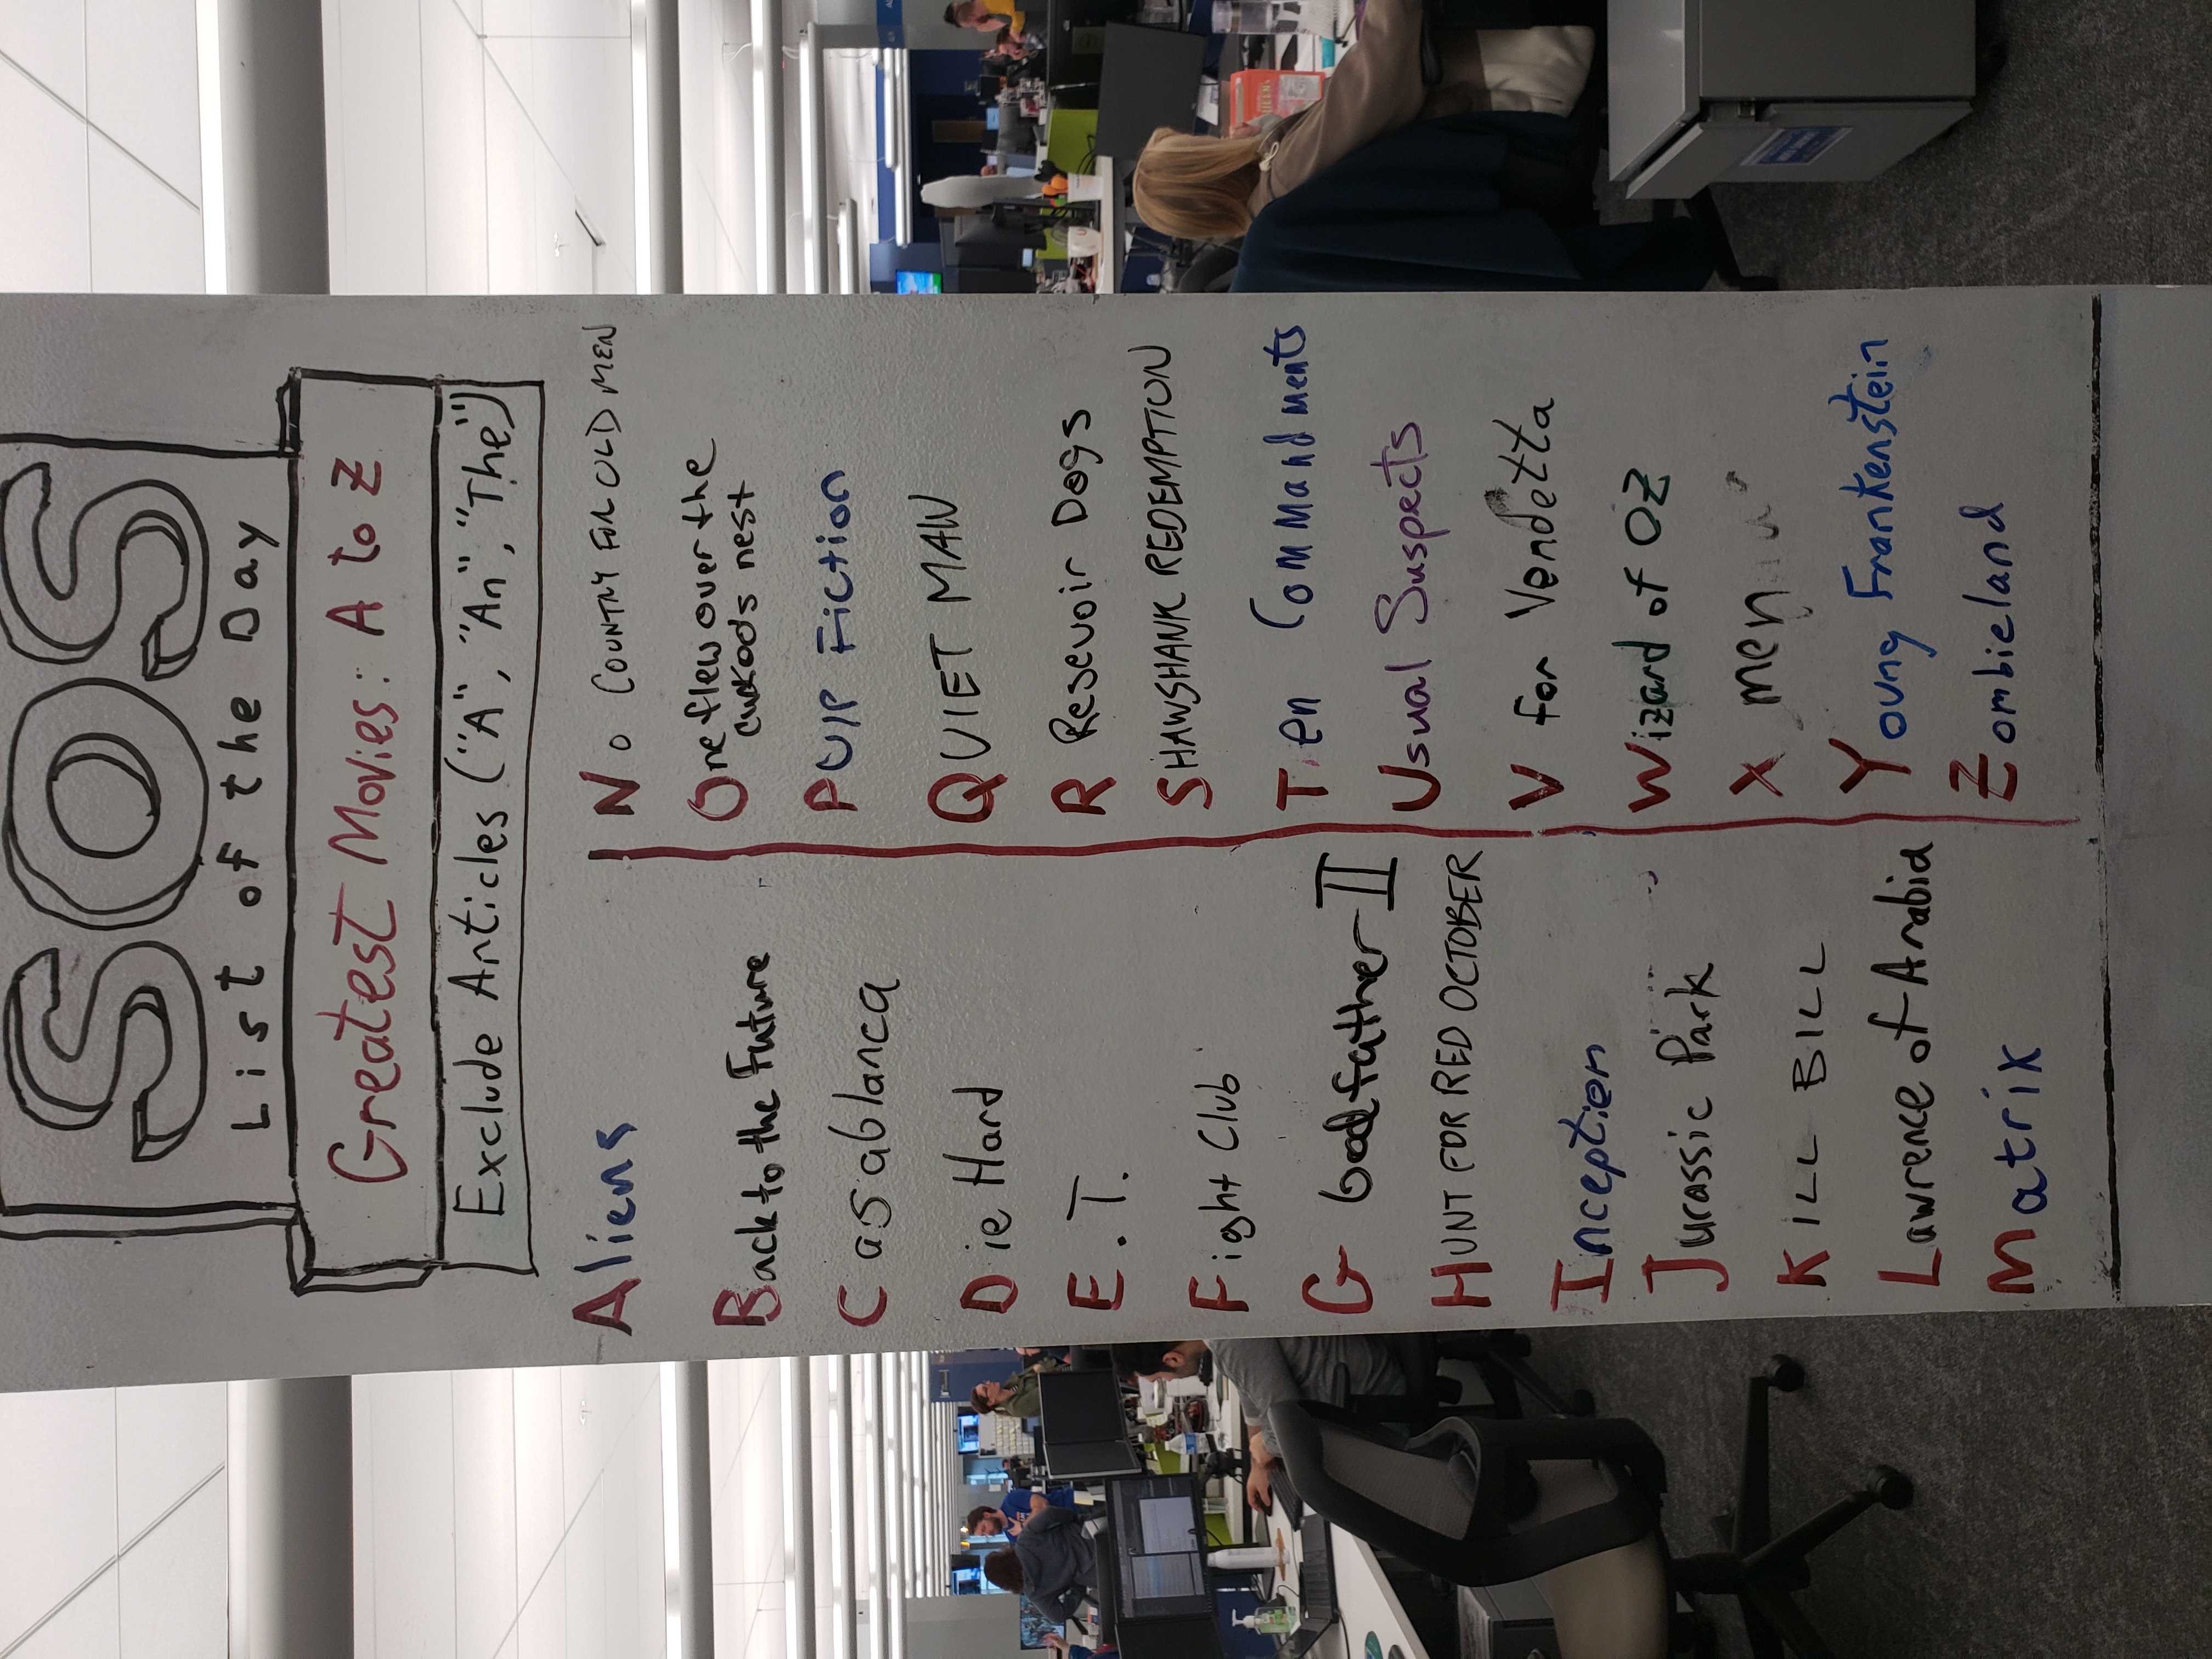 SOS
List of the Day
Greatest Movies: A to Z
Exclude Articles ("A", "An", "The")
Aliens
Back to the Future
Casablanca
Die Hard
E.T.
Fight Club
G Godfather II
HUNT FOR RED OCTOBER
Inception
Jurassic Park
KILL BILL
Lawrence of Arabia
Matrix
No COUNTRY FOR OLD MEN
One flew over the
cuckoo's nest
Pulp Fiction
QUIET MAN
R Resevoir Dogs
SHAWSHANK REDEMPTION
Ten Commandments
Usual Suspects
V for Vendetta
Wizard of OZ
X men
Young Frankenstein
Zombieland